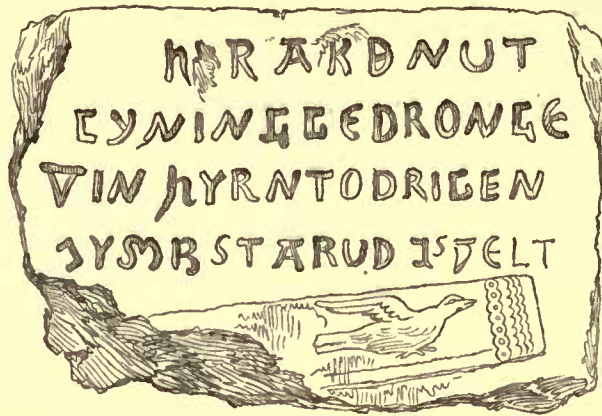 HARAKDNUT
CYNINGGEDRONGE
VIN HYRNTODRIGEN
JYMBSTARUD ISVELT